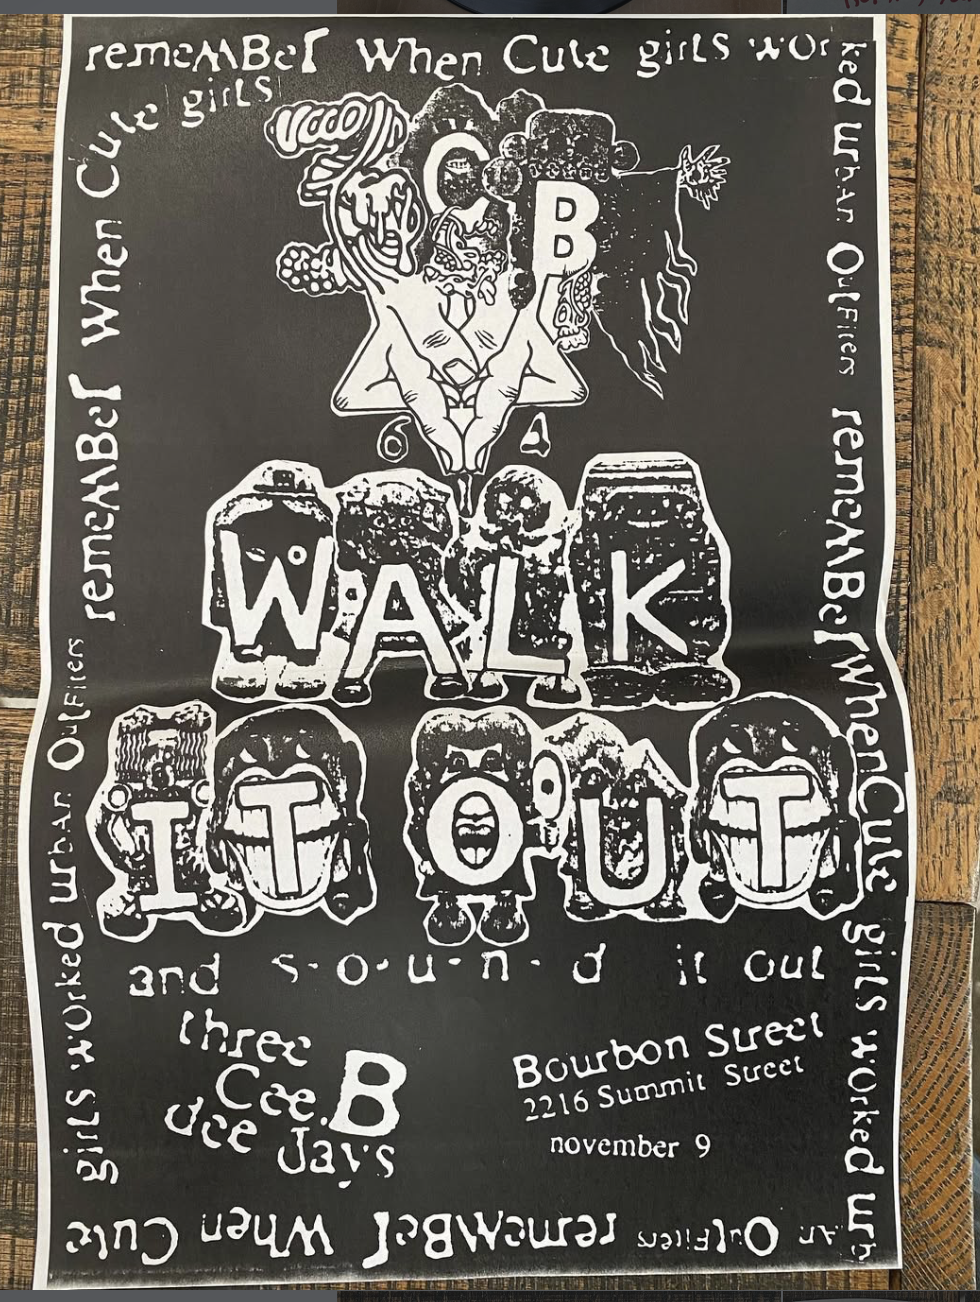 remeMBer When Cute girls worked urban OutFiters remeMBer When Cute girls worked urban OutFiters remeMBer When Cute girls worked urban OutFiters remeMBer When Cute girls
C B
6 4
WALK
IT OUT
and s-o-u-n-d it out
three
Cee B
dee Jays
Bourbon Street
2216 Summit Street
november 9